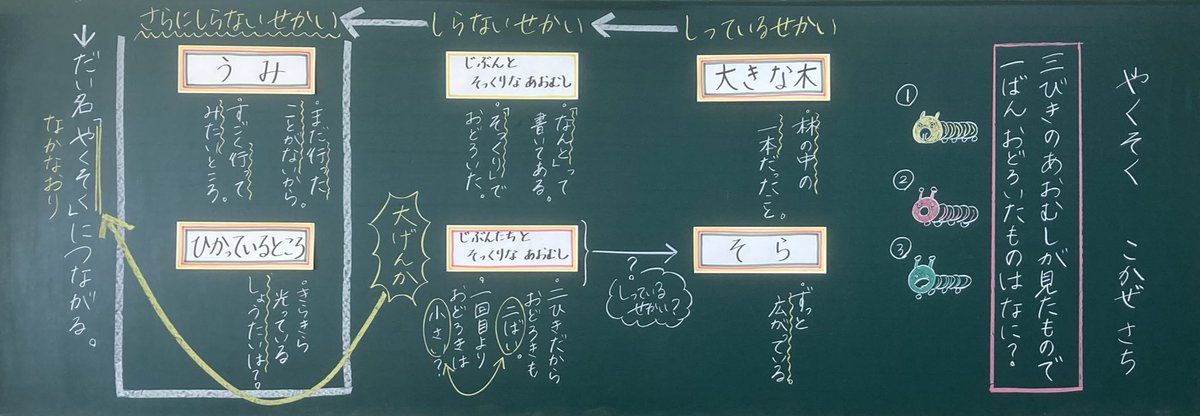 やくそく　こかぜ さち
三びきのあおむしが見たもので
一ばん おどろいたものはなに?
①
②
③
しっているせかい
大きな木
・林の中の
一本だったこと。
そら
・ずっと
広がっている。
?
しっている
せかい?
しらないせかい
じぶんと
そっくりな あおむし
・「なんと」って
書いてある。
・「そっくり」で
おどろいた。
じぶんたちと
そっくりな あおむし
・二ひきだから
おどろきも
二ばい。
・一回目より
おどろきは
小さい?
大げんか
さらにしらないせかい
うみ
・まだ行った
ことがないから
・すごく行って
みたいところ。
ひかっているところ
・きらきら
光っている
しょうたいは?
↓だい名「やくそく」につながる。
なかなおり